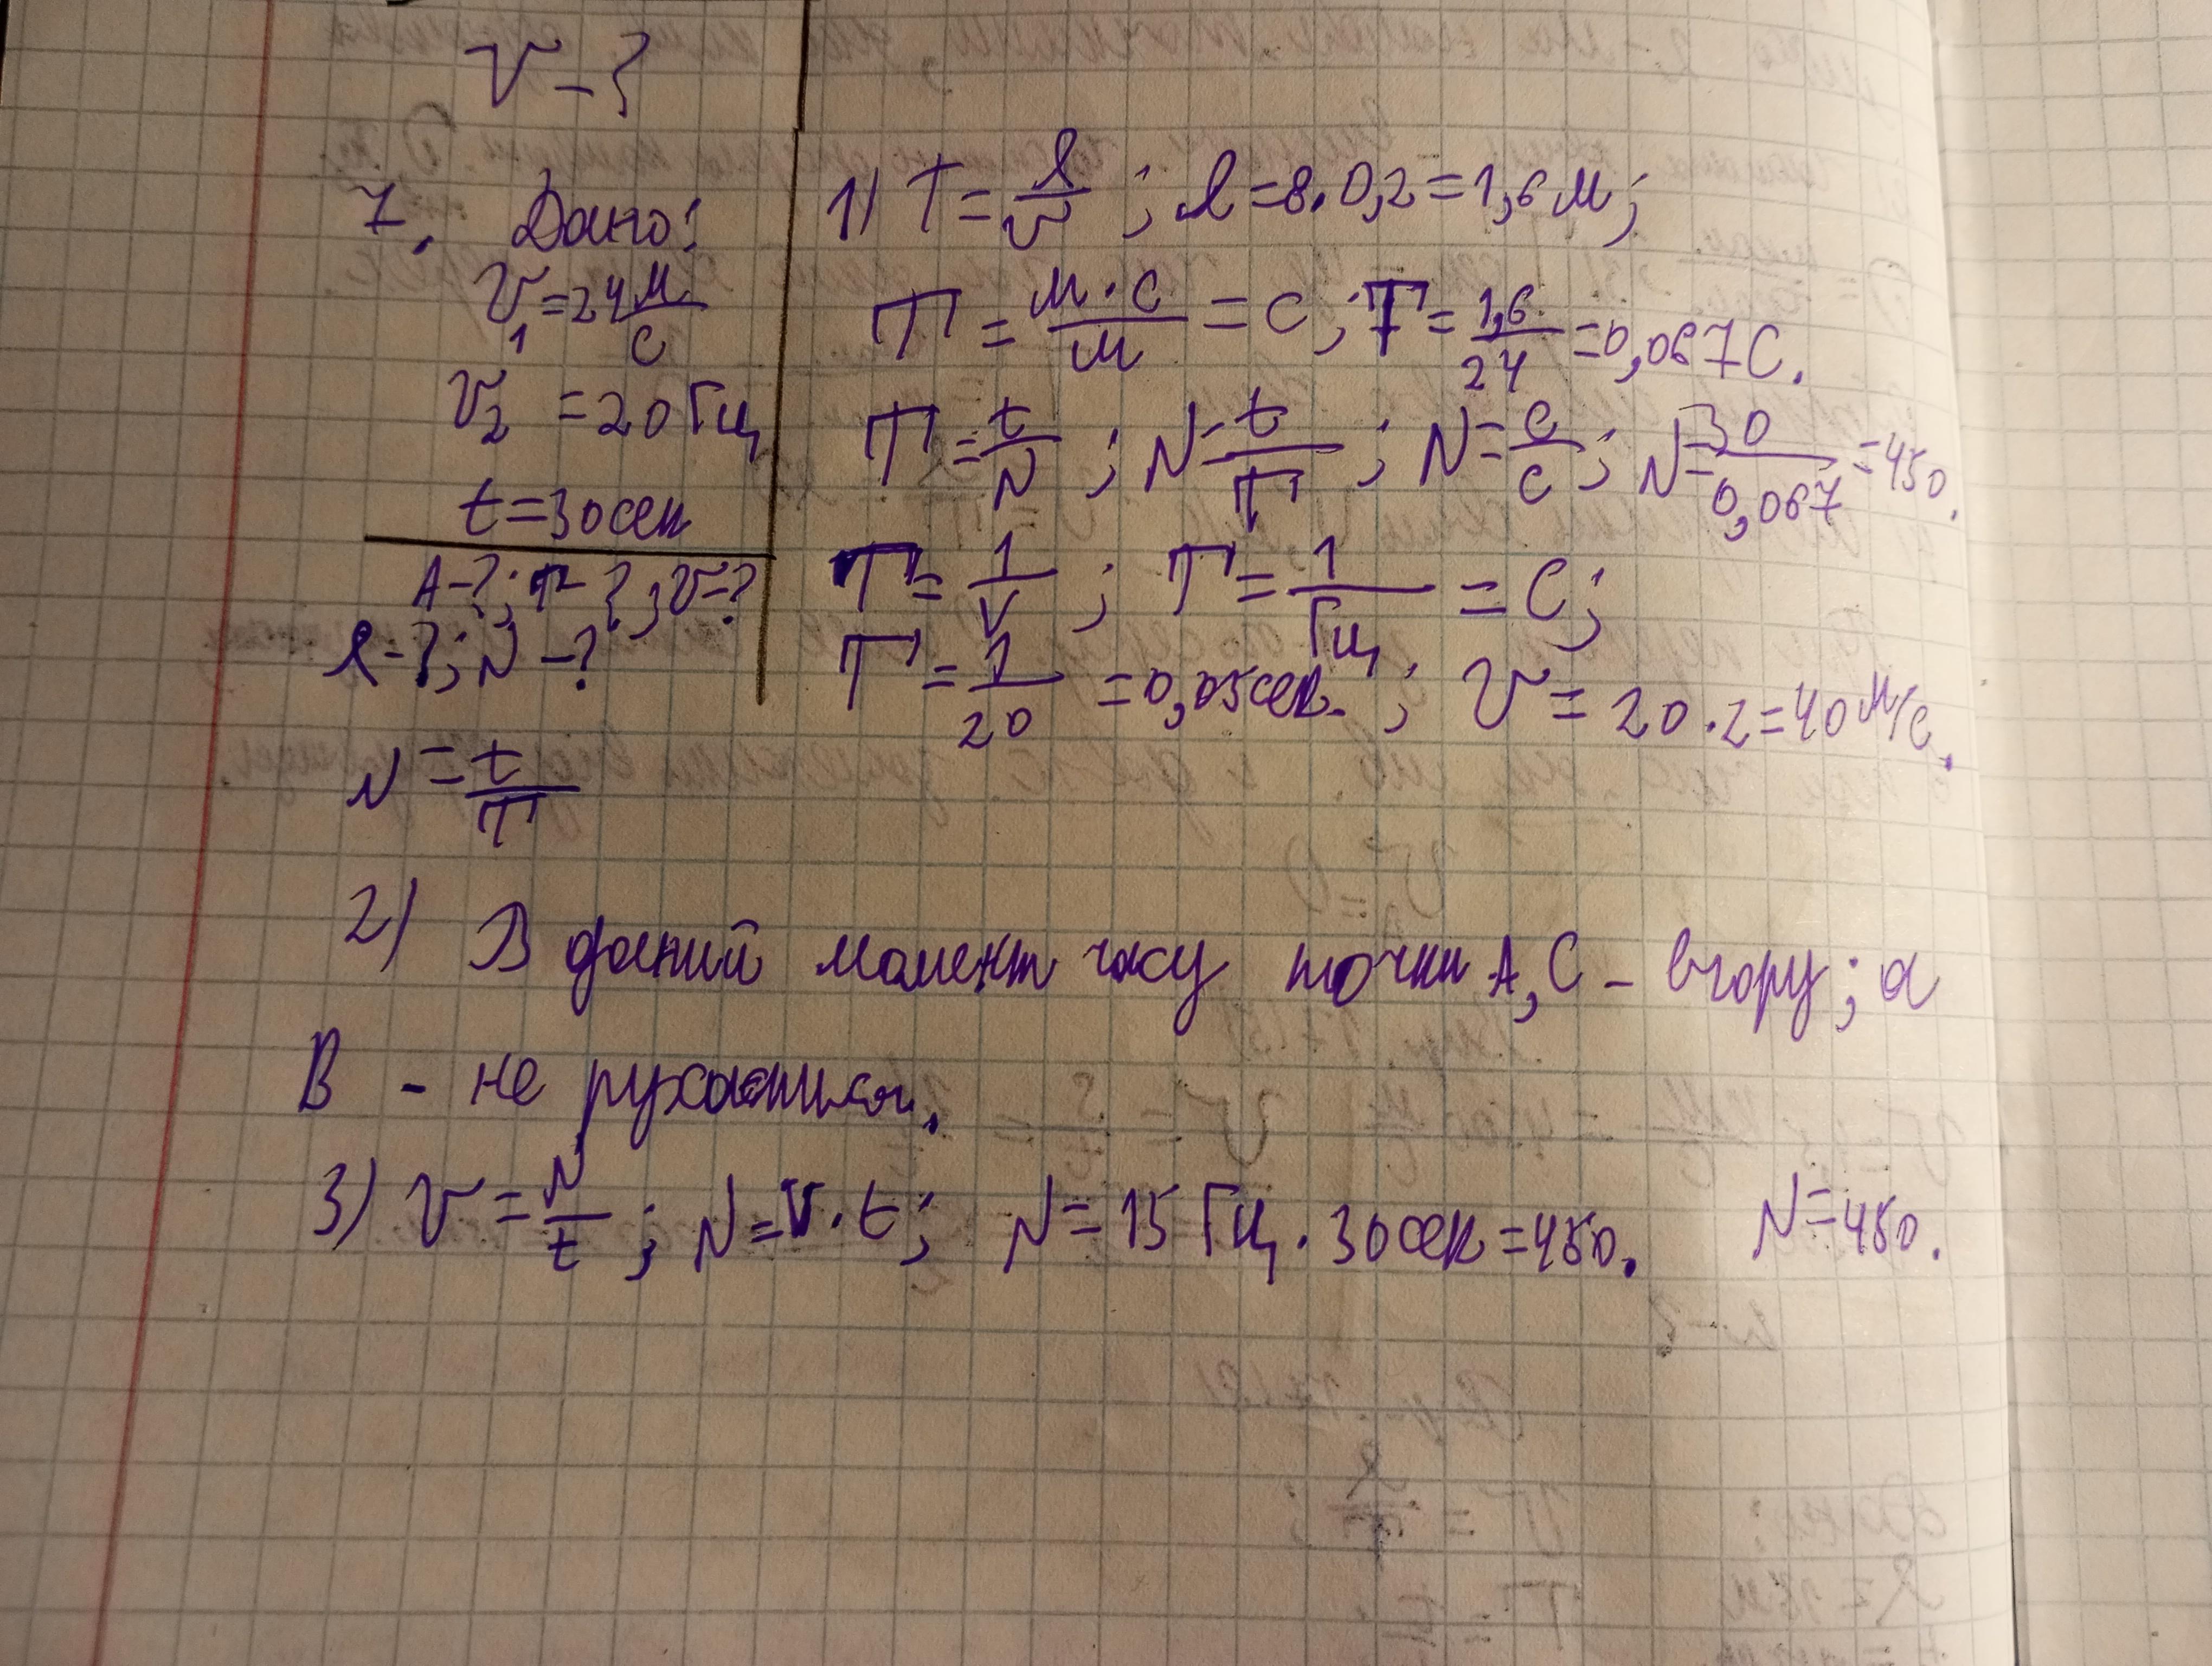 v - ?
7. Дано:
v₁ = 24 м/с
v₂ = 20 Гц
t = 30 сек
A - ?; T - ?; v - ?
λ - ?; N - ?
N = t/T
1) T = λ/v; λ = 8 · 0,2 = 1,6 м;
T = м·с/м = с; T = 1,6/24 = 0,067 с.
T = t/N; N = t/T; N = с/с; N = 30/0,067 = 450.
T = 1/ν; T = 1/Гц = с;
T = 1/20 = 0,05 сек.; v = 20 · 2 = 40 м/с.
2) В даний момент часу точки А, С - вгору; а
В - не рухається.
3) ν = N/t; N = ν · t; N = 15 Гц · 30 сек = 450. N = 450.